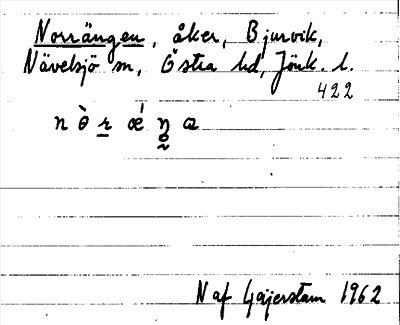 Norrängen, åker, Bjurvik,
Nävelsjö sn, Östra hd, Jönk. l.
422
n ɵ̀ r ǽ ŋ a
N af Gäjerstam 1962